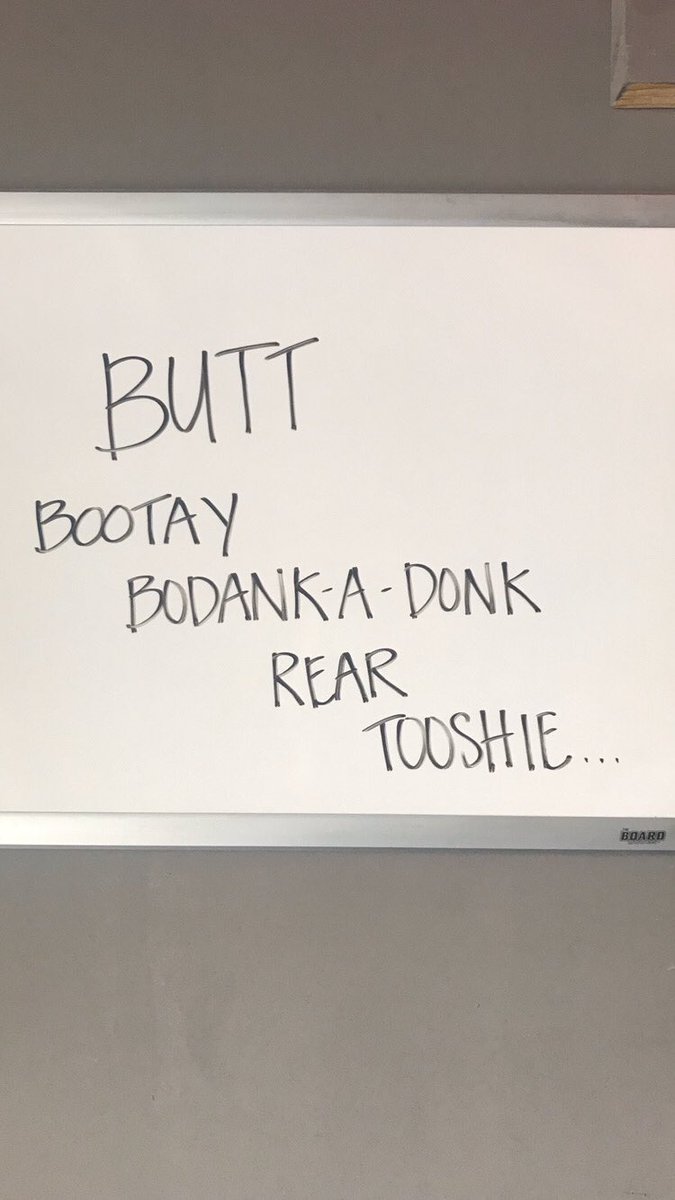 BUTT
BOOTAY
BODANK-A-DONK
REAR
TOOSHIE...
THE BOARD